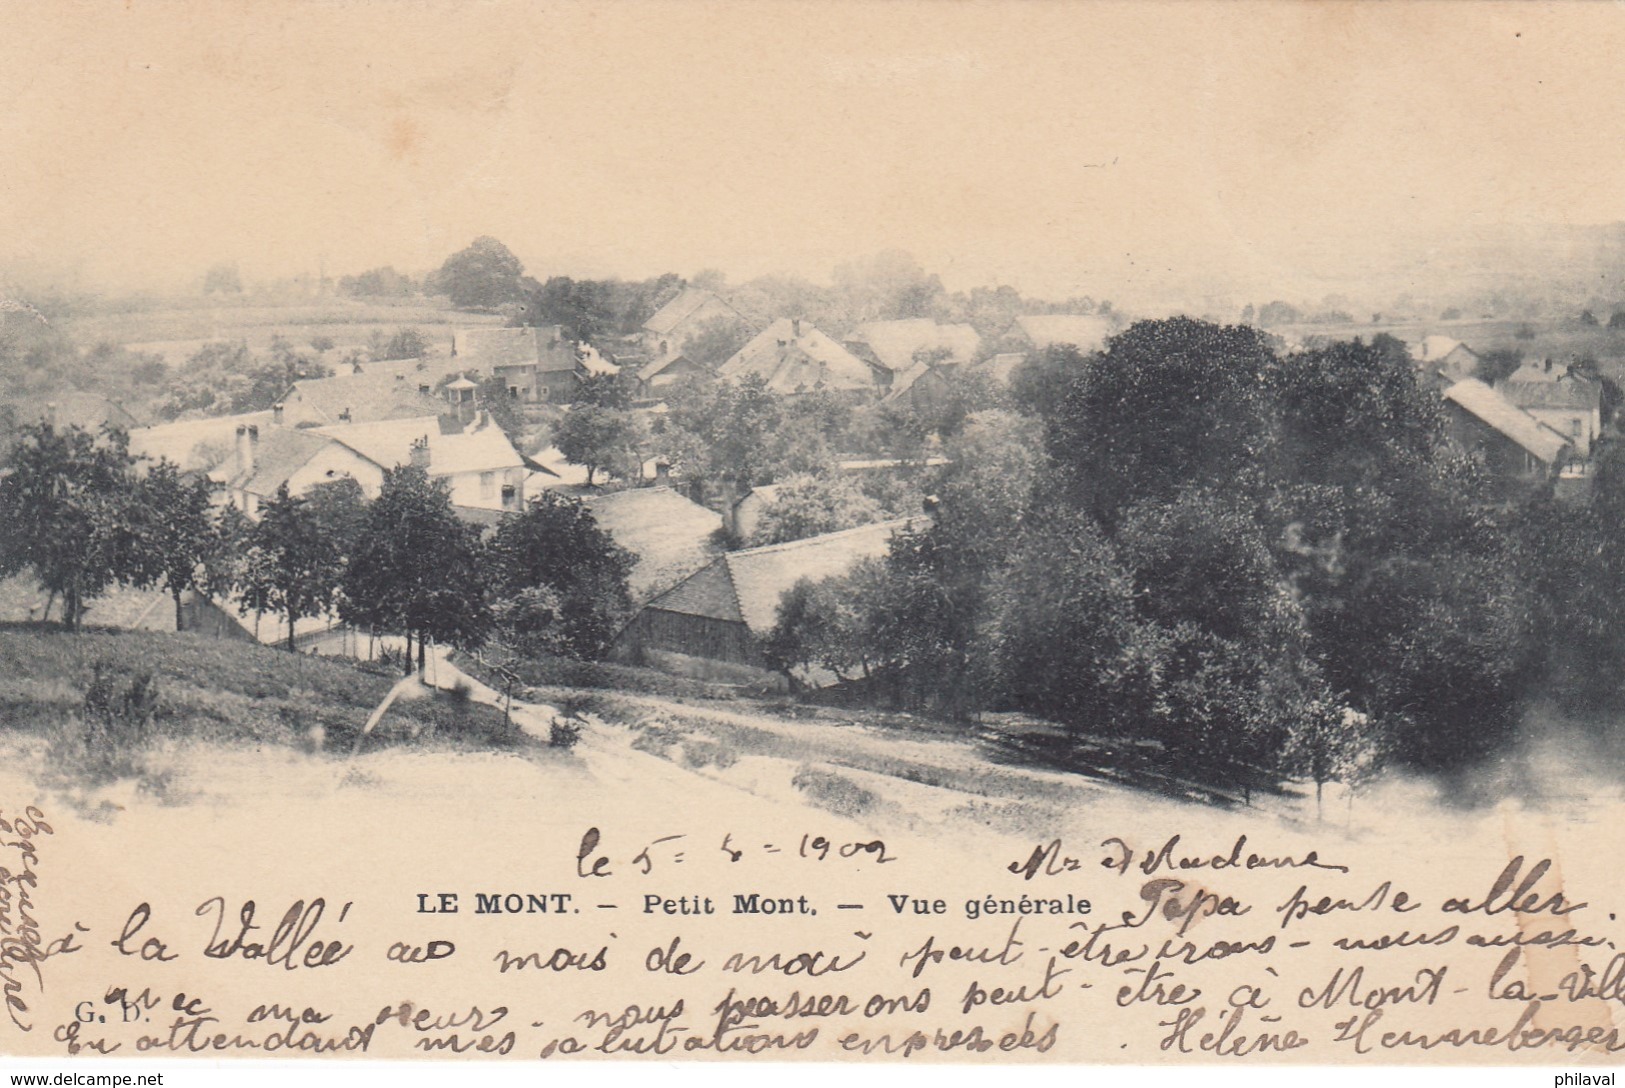 le 5 = 4 = 1902
Mr & Madame
LE MONT. – Petit Mont. – Vue générale
Papa pense aller
à la Vallée au mois de mai peut-être irons-nous aussi.
avec ma sœur. nous passerons peut-être à Mont-la-Ville
G. D.
En attendant mes salutations empressées. Hélène Henneberger
Excusez
l'écriture
© delcampe.net
philaval